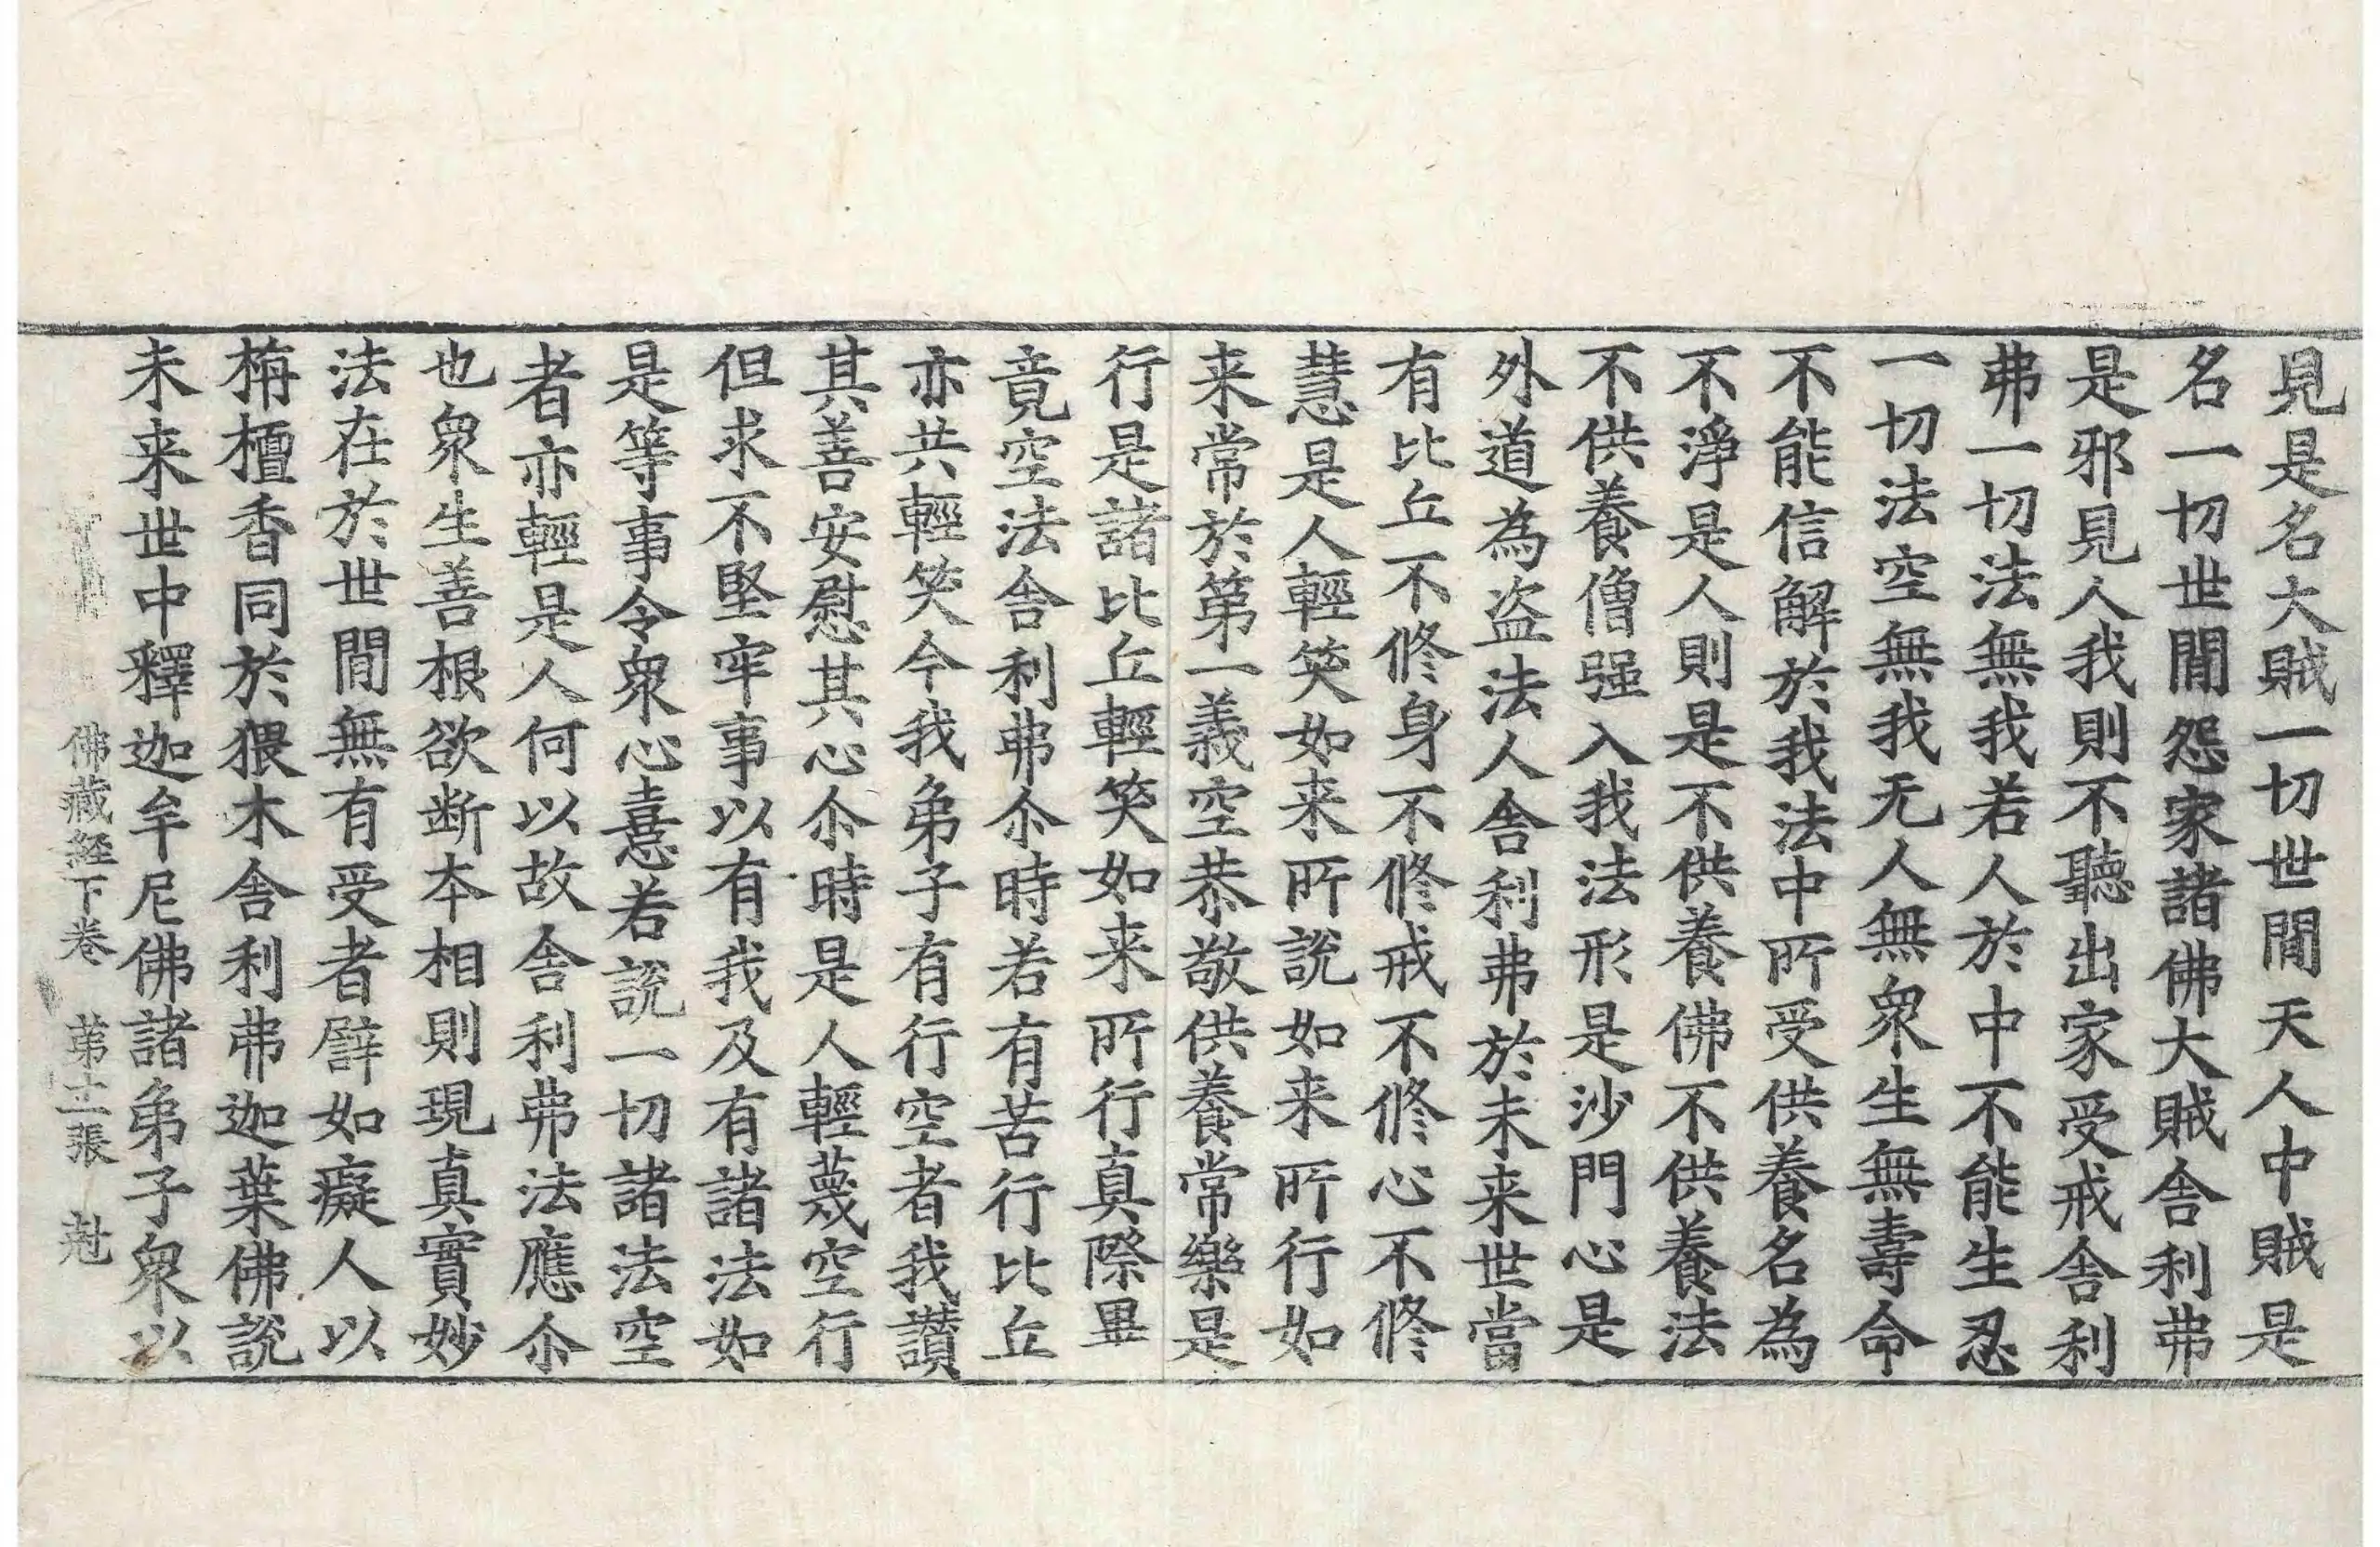 見是名大賊一切世間天人中賊是
名一切世閒怨家諸佛大賊舍利弗
是邪見人我則不聽出家受戒舍利
弗一切法無我若人於中不能生忍
一切法空無我无人無衆生無壽命
不能信解於我法中所受供養名為
不淨是人則是不供養佛不供養法
不供養僧强入我法形是沙門心是
外道為盗法人舍利弗於未来世當
有比丘不修身不修戒不修心不修
慧是人輕笑如来所說如来所行如
来常於第一義空恭敬供養常樂是
行是諸比丘輕笑如来所行真際畢
竟空法舍利弗尒時若有苦行比丘
亦共輕笑今我弟子有行空者我讃
其善安慰其心尒時是人輕蔑空行
但求不堅牢事以有我及有諸法如
是等事令衆心憙若說一切諸法空
者亦輕是人何以故舍利弗法應尒
也衆生善根欲断本相則現真實妙
法在於世間無有受者譬如癡人以
栴檀香同於猥木舍利弗迦葉佛說
未来世中釋迦牟尼佛諸弟子衆以
佛藏経下卷 第土張 尅